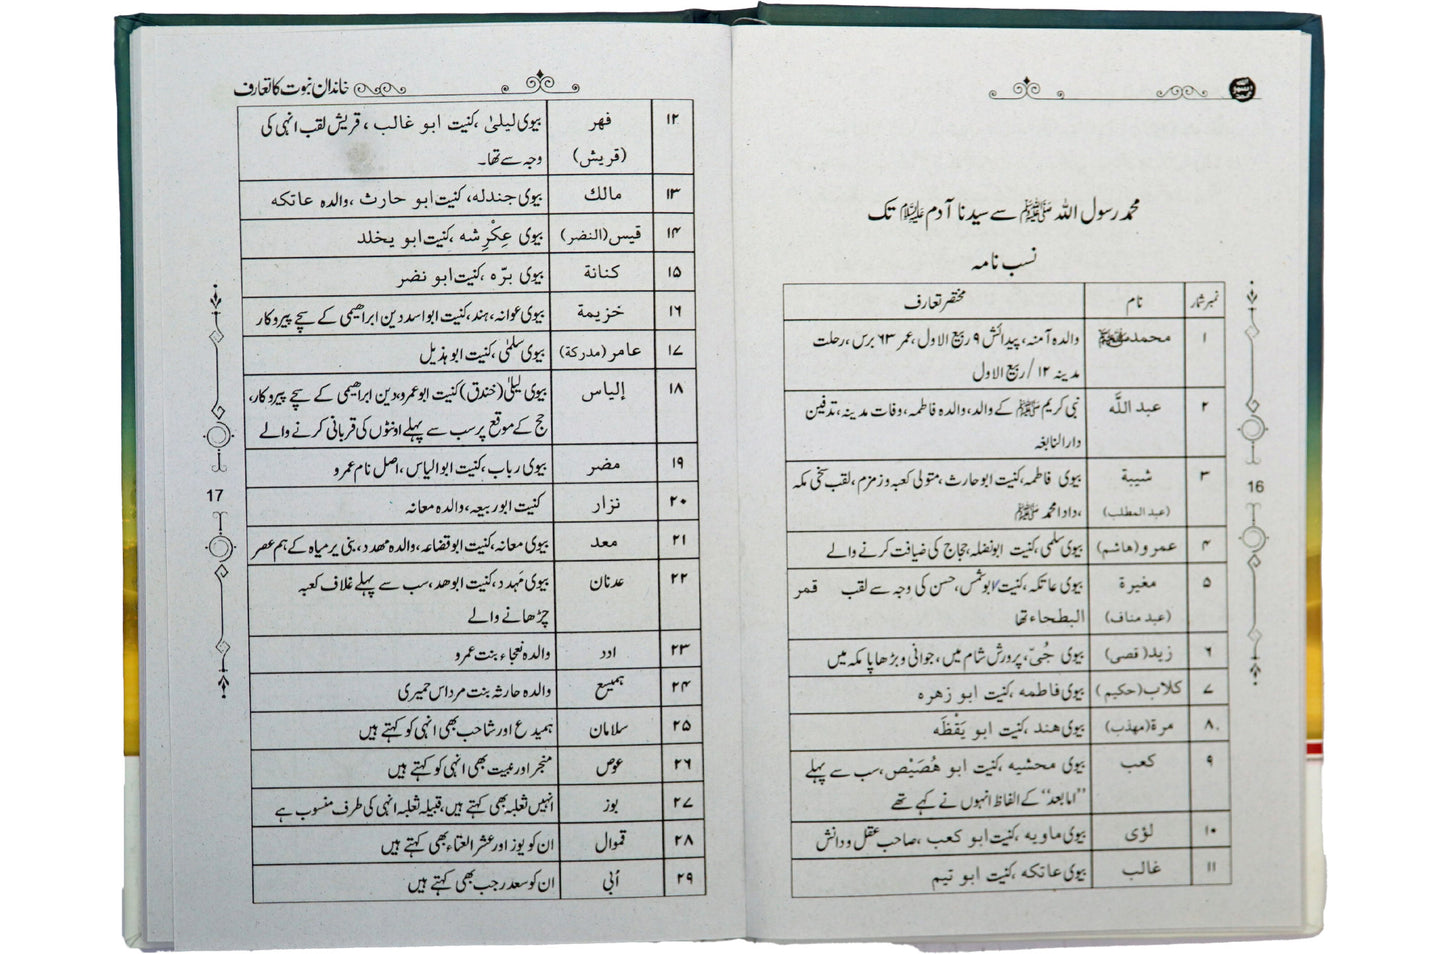 محمد رسول اللہ ﷺ سے سیدنا آدم علیہ السلام تک
نسب نامہ
نمبر شمار نام مختصر تعارف
۱ محمد ﷺ والدہ آمنہ، پیدائش ۹ ربیع الاول، عمر ۶۳ برس، رحلت
مدینہ ۱۲/ ربیع الاول
۲ عبد اللّٰه نبی کریم ﷺ کے والد، والدہ فاطمہ، وفات مدینہ، تدفین
دارالنابغہ
۳ شیبة بیوی فاطمہ، کنیت ابوحارث، متولی کعبہ و زمزم، لقب سخی مکہ
(عبد المطلب) ،دادا محمد ﷺ
۴ عمرو (هاشم) بیوی سلمی، کنیت ابونضلہ، حجاج کی ضیافت کرنے والے
۵ مغیرة بیوی عاتکہ، کنیت ابوشمس، حسن کی وجہ سے لقب قمر
(عبد مناف) البطحاء تھا
۶ زید (قصی) بیوی حُبّی، پرورش شام میں، جوانی و بڑھاپا مکہ میں
۷ کلاب (حکیم) بیوی فاطمہ، کنیت ابو زهرہ
۸ مرة (مهذب) بیوی هند، کنیت ابو یَقْظَه
۹ کعب بیوی محشیہ، کنیت ابو هُصَیْص، سب سے پہلے
”اما بعد“ کے الفاظ انہوں نے کہے تھے
۱۰ لؤی بیوی ماویہ، کنیت ابو کعب، صاحب عقل و دانش
۱۱ غالب بیوی عاتکه، کنیت ابو تیم
16
خاندان نبوت کا تعارف
۱۲ فهر بیوی لیلیٰ، کنیت ابو غالب، قریش لقب انہی کی
(قریش) وجہ سے تھا۔
۱۳ مالك بیوی جندلہ، کنیت ابو حارث، والدہ عاتکه
۱۴ قیس (النضر) بیوی عِکْرِشہ، کنیت ابو یخلد
۱۵ کنانة بیوی برّہ، کنیت ابو نضر
۱۶ خزیمة بیوی عوانہ، ہند، کنیت ابواسد دین ابراہیمی کے سچے پیروکار
۱۷ عامر (مدركة) بیوی سلمٰی، کنیت ابو ہذیل
۱۸ إلیاس بیوی لیلیٰ (خندق) کنیت ابوعمرو، دین ابراہیمی کے سچے پیروکار،
حج کے موقع پر سب سے پہلے اونٹوں کی قربانی کرنے والے
۱۹ مضر بیوی رباب، کنیت ابوالیاس، اصل نام عمرو
۲۰ نزار کنیت ابوربیعہ، والدہ معانہ
۲۱ معد بیوی معانہ، کنیت ابوقضاعہ، والدہ مهدد، بنی یرمیاہ کے ہم عصر
۲۲ عدنان بیوی مَہدد، کنیت ابوهد، سب سے پہلے غلاف کعبہ
چڑھانے والے
۲۳ ادد والدہ نعجاء بنت عمرو
۲۴ ہمیسع والدہ حارثہ بنت مرداس حمیری
۲۵ سلامان ہمیدع اور شاحب بھی انہی کو کہتے ہیں
۲۶ عوص منجر اور عبیت بھی انہی کو کہتے ہیں
۲۷ بوز انہیں ثعلبہ بھی کہتے ہیں، قبیلہ ثعلبہ انہی کی طرف منسوب ہے
۲۸ قموال ان کو یوز اور عشر العتاء بھی کہتے ہیں
۲۹ اُبی ان کو سعد رجب بھی کہتے ہیں
17